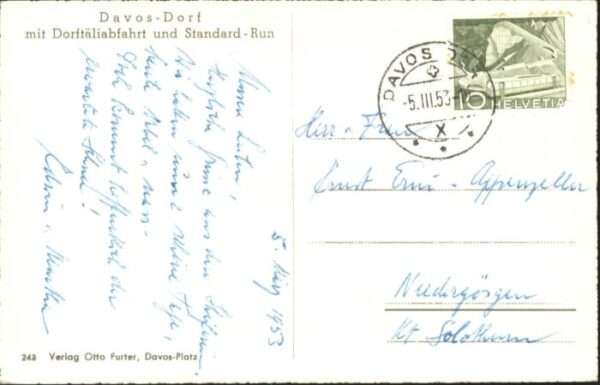 Davos-Dorf
mit Dorftäliabfahrt und Standard-Run
5. März 1953
Meine Lieben!
Herzliche Grüsse aus den Skiferien.
Wir haben schöne Tage,
heute Nebel
Doch kommt hoffentlich der
erwartete Schnee!
Edwin u. Martha
DAVOS DORF
-5.III.53-
X
10
HELVETIA
Herr u. Frau
Ernst Erni-Appenzeller
Niedergösgen
Kt Solothurn
243 Verlag Otto Furter, Davos-Platz